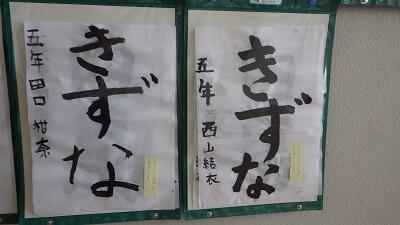 きずな
五年 西山 結衣
きずな
五年 田口 柑奈